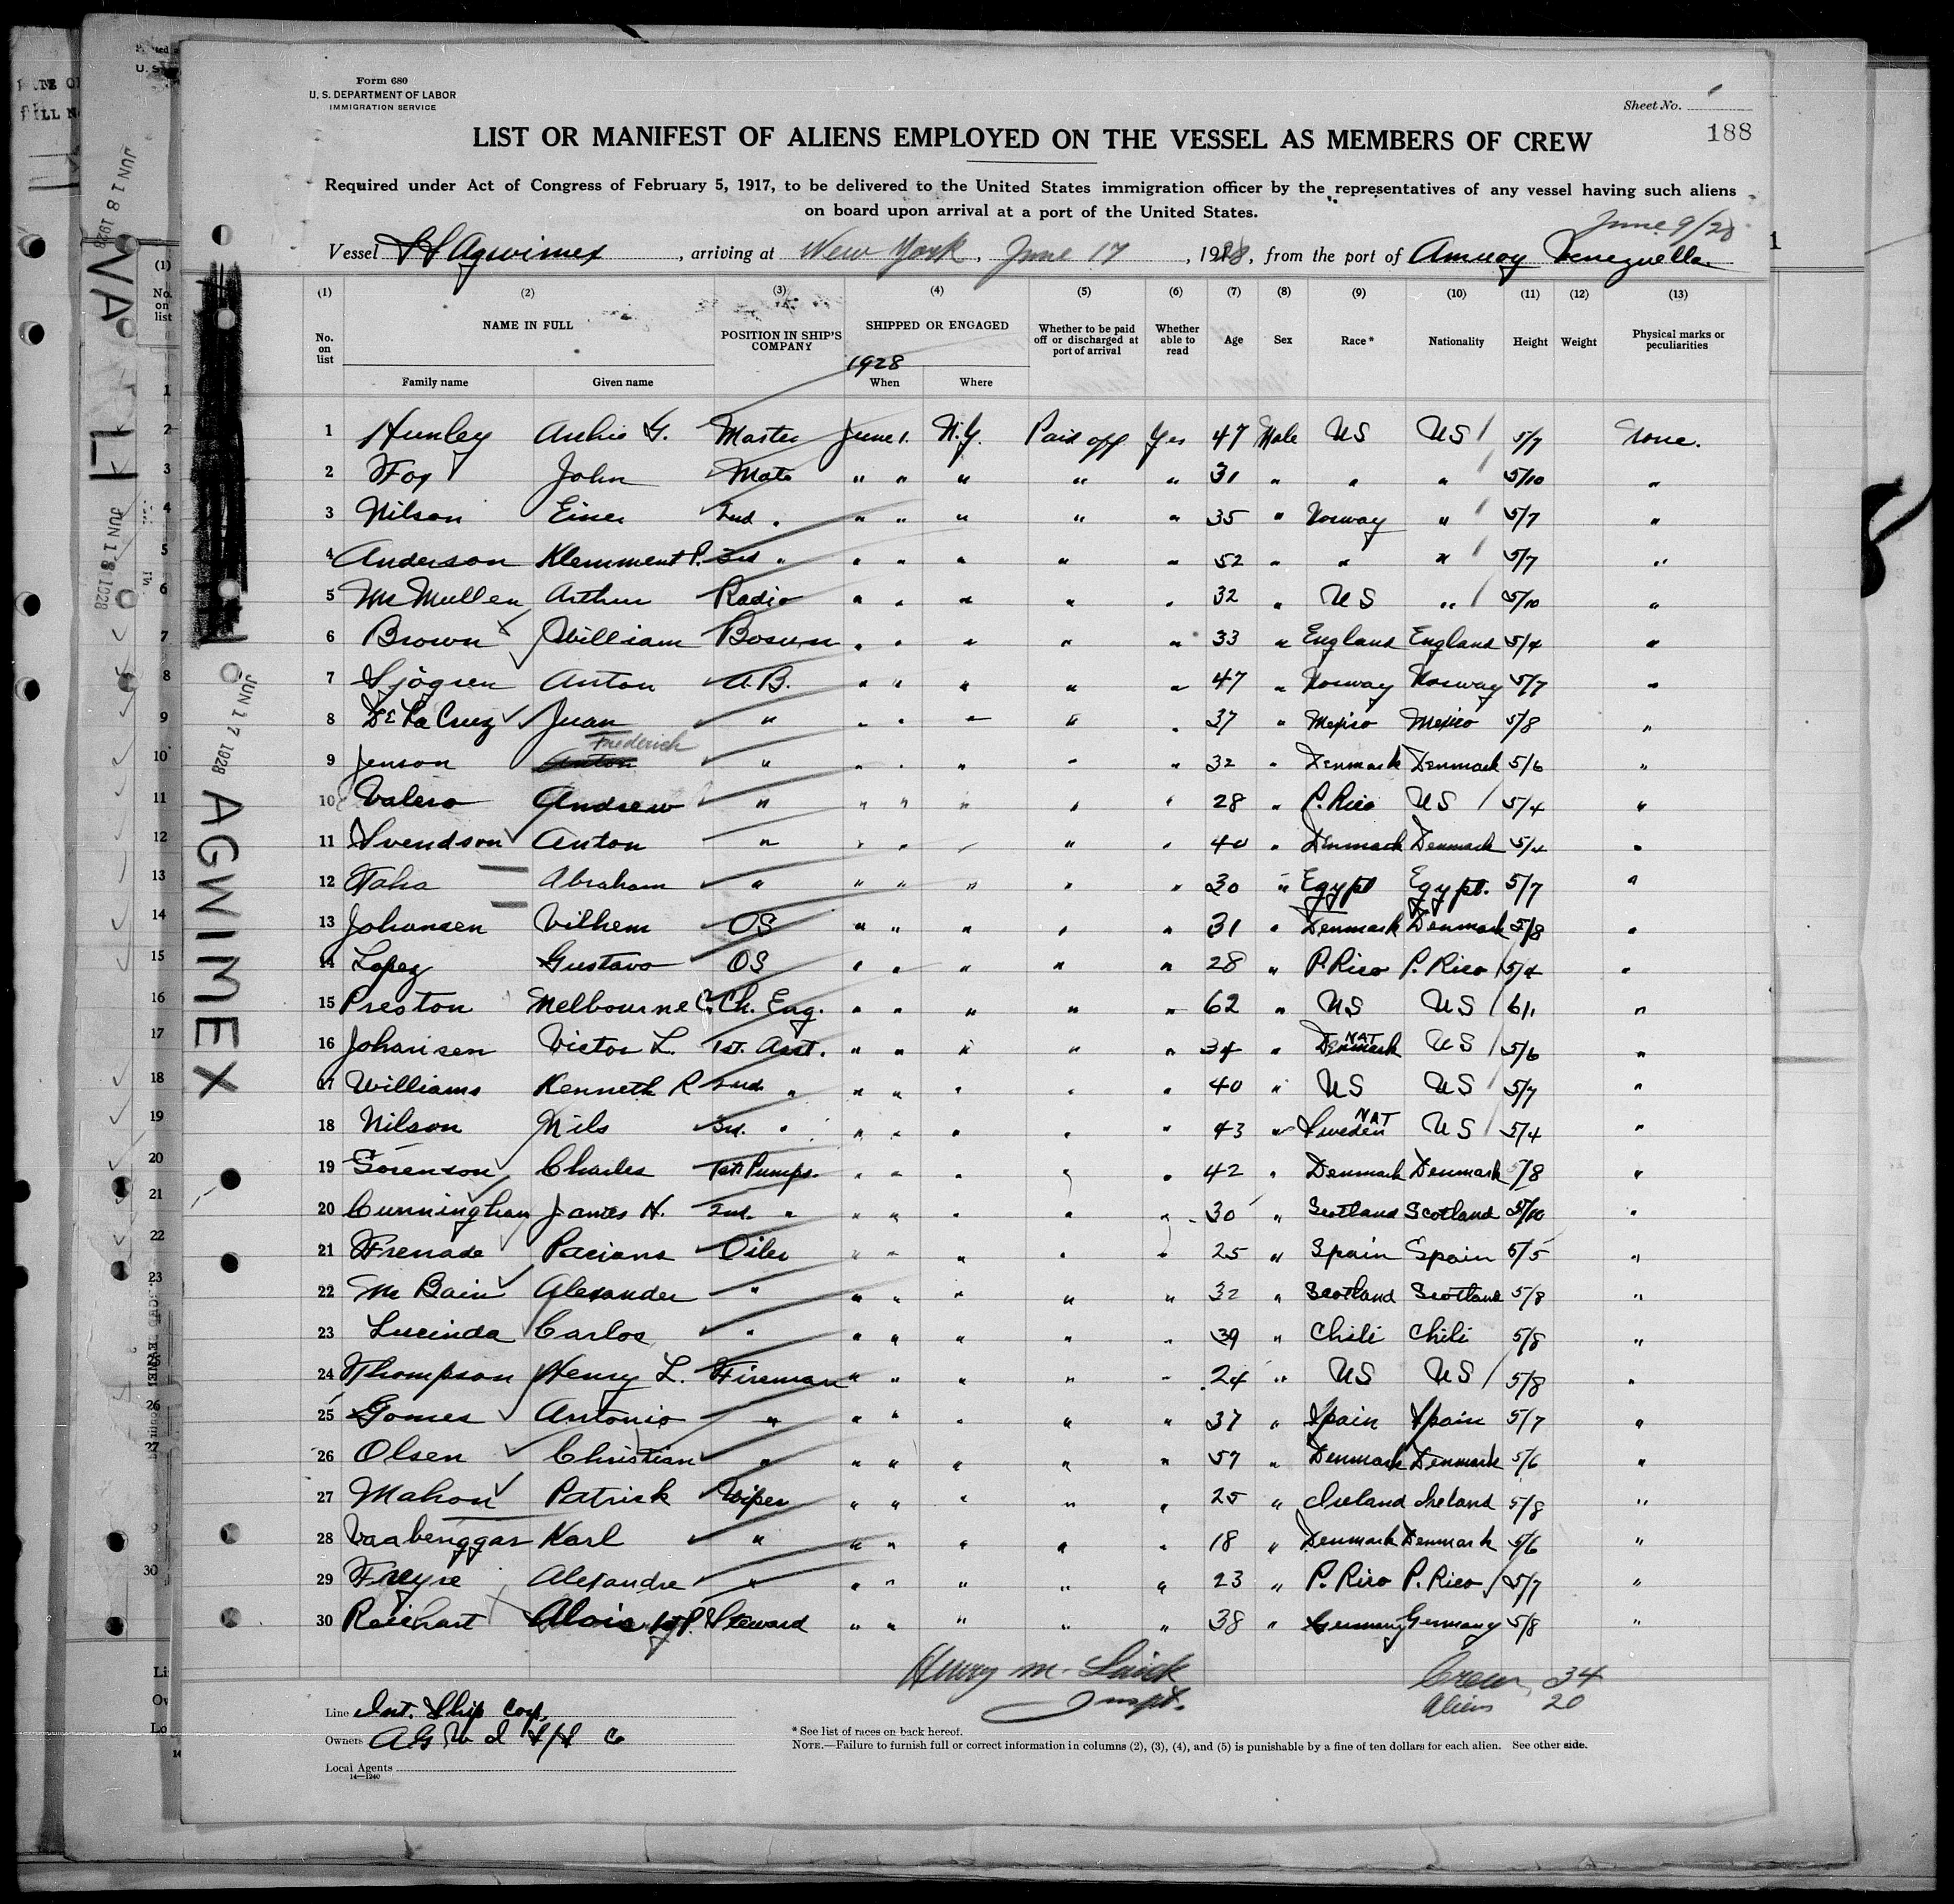 Form 680
U. S. DEPARTMENT OF LABOR
IMMIGRATION SERVICE
Sheet No. 1
188
LIST OR MANIFEST OF ALIENS EMPLOYED ON THE VESSEL AS MEMBERS OF CREW
Required under Act of Congress of February 5, 1917, to be delivered to the United States immigration officer by the representatives of any vessel having such aliens
on board upon arrival at a port of the United States.
June 9/28
Vessel SS Agwimex, arriving at New York, June 17, 1928, from the port of Amuay Venezuella
(1) (2) (3) (4) (5) (6) (7) (8) (9) (10) (11) (12) (13)
No. on list NAME IN FULL POSITION IN SHIP'S COMPANY SHIPPED OR ENGAGED Whether to be paid off or discharged at port of arrival Whether able to read Age Sex Race* Nationality Height Weight Physical marks or peculiarities
1928
Family name Given name When Where
1 Hunley Archie G. Master June 1. N.Y. Paid off Yes 47 Male US US 5/7 None.
2 Fox John Mate " " " " " 31 " " " 5/10 "
3 Nilson Einer 2nd " " " " " " 35 " Norway " 5/7 "
4 Anderson Klemment P. 3rd " " " " " " 52 " " " 5/7 "
5 McMullen Arthur Radio " " " " " 32 " US " 5/10 "
6 Brown William Bosun " " " " " 33 " England England 5/4 "
7 Sjogren Anton A.B. " " " " " 47 " Norway Norway 5/7 "
8 De La Cruz Juan " " " " " " 37 " Mexico Mexico 5/8 "
Frederich
9 Jenson Anton " " " " " " 32 " Denmark Denmark 5/6 "
10 Valero Andrew " " " " " " 28 " P. Rico US 5/4 "
11 Svendson Anton " " " " " " 40 " Denmark Denmark 5/4 "
12 Taha Abraham " " " " " " 30 " Egypt Egypt. 5/7 "
13 Johansen Vilhem OS " " " " " 31 " Denmark Denmark 5/8 "
14 Lopez Gustavo OS " " " " " 28 " P. Rico P. Rico 5/4 "
15 Preston Melbourne C. Ch. Eng. " " " " " 62 " US US 6/1 "
16 Johansen Victor L. 1st. Asst. " " " " " 34 " Denmark NAT US 5/6 "
17 Williams Kenneth R 2nd " " " " " " 40 " US US 5/7 "
18 Nilson Nils 3rd. " " " " " " 43 " Sweden NAT US 5/4 "
19 Sorenson Charles 1st Pumps. " " " " " 42 " Denmark Denmark 5/8 "
20 Cunningham James H. 2nd. " " " " " " 30 " Scotland Scotland 5/10 "
21 Frenade Paciano Oiler " " " " " 25 " Spain Spain 5/5 "
22 McBain Alexander " " " " " " 32 " Scotland Scotland 5/8 "
23 Lucinda Carlos " " " " " " 39 " Chili Chili 5/8 "
24 Thompson Henry L. Fireman " " " " " 24 " US US 5/8 "
25 Gomes Antonio " " " " " " 37 " Spain Spain 5/7 "
26 Olsen Christian " " " " " " 57 " Denmark Denmark 5/6 "
27 Mahon Patrick Wiper " " " " " 25 " Ireland Ireland 5/8 "
28 Vaabenggar Karl " " " " " " 18 " Denmark Denmark 5/6 "
29 Freyre Alexandre " " " " " " 23 " P. Rico P. Rico 5/7 "
30 Reichart Alois Steward " " " " " 38 " Germany Germany 5/8 "
Henry M.
Inspt.
Crew 34
Aliens 20
Line Int. Ship Corp.
Owners A G W I S/S Co
Local Agents
14—1240
* See list of races on back hereof.
NOTE.—Failure to furnish full or correct information in columns (2), (3), (4), and (5) is punishable by a fine of ten dollars for each alien. See other side.
JUN 17 1928
AGWIMEX
JUN 18 1928
JUN 18 1928